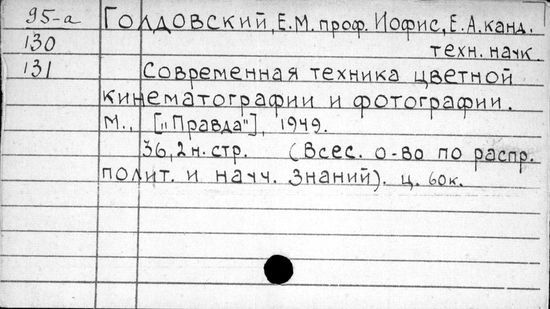 95-а Голдовский, Е.М. проф. Иофис, Е.А. канд.
130 техн. наук.
131 Современная техника цветной
кинематографии и фотографии.
М., ["Правда"], 1949.
36,2 н. стр. (Всес. о-во по распр.
полит. и науч. знаний). ц. 60к.